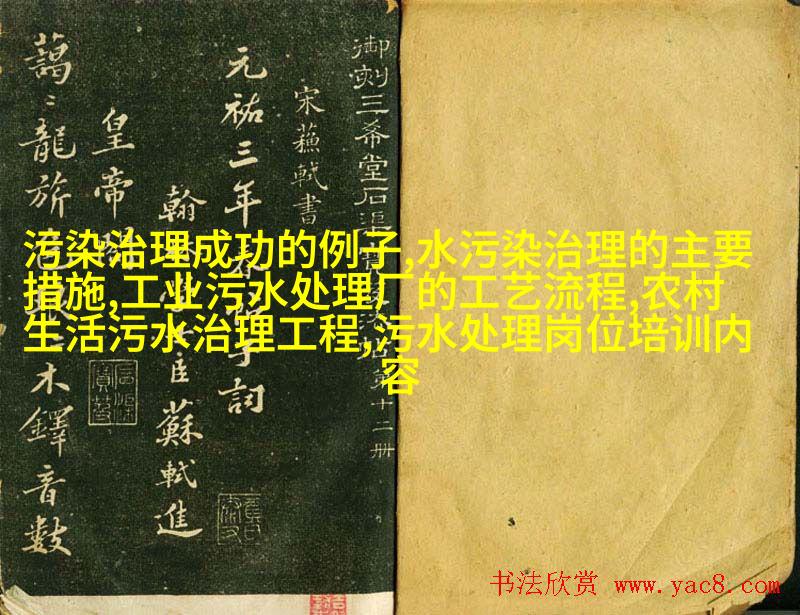 御刻三希堂石渠第十二册
宋蘓軾書
元祐三年春子詞
翰臣蘇軾進
皇帝閣
藹〻龍旂木鐸音數
污染治理成功的例子,水污染治理的主要
措施,工业污水处理厂的工艺流程,农村
生活污水治理工程,污水处理岗位培训内
容
书法欣赏 www.yac8.com